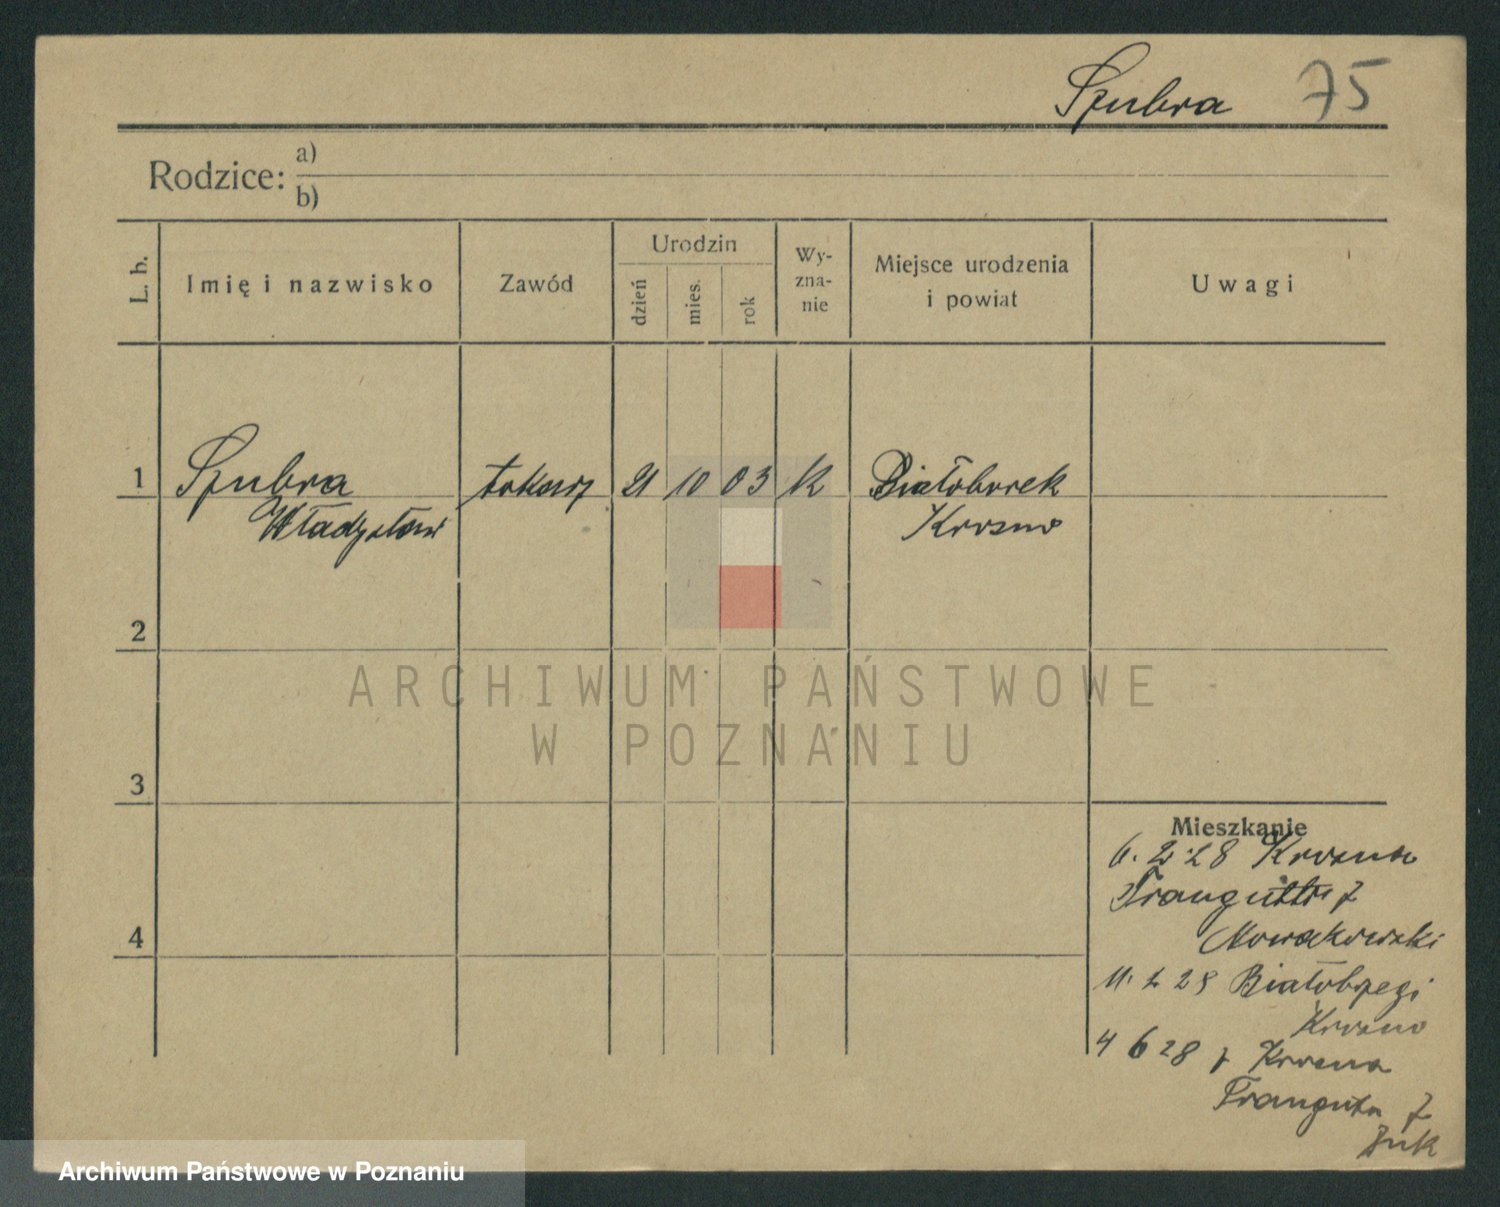 Szubra 75
Rodzice: a)
b)
L. b. Imię i nazwisko Zawód Urodzin dzień mies. rok Wy-
zna-
nie Miejsce urodzenia
i powiat Uwagi
1 Szubra tokarz 21 10 03 K Białoborek
Władysław Krosno
2
ARCHIWUM PAŃSTWOWE
W POZNANIU
3
Mieszkanie
6. 2. 28 Krosna
Traugutta 7
4
Nowakowski
11. 2 28 Białobrzegi
Krosno
4 6 28 z Krosna
Trauguta 7
Żuk
Archiwum Państwowe w Poznaniu